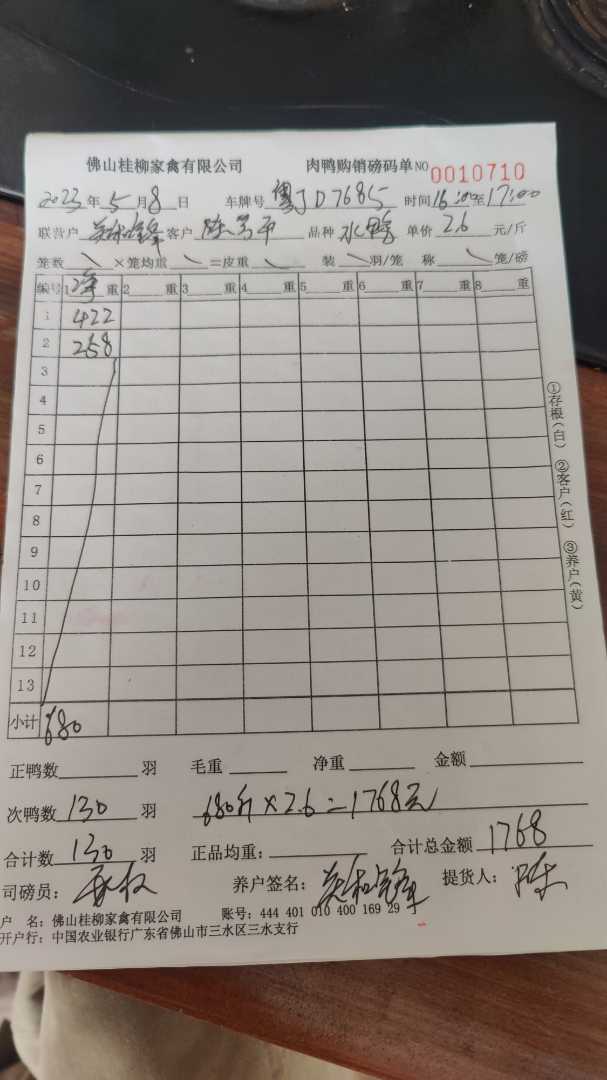 佛山桂柳家禽有限公司 肉鸭购销磅码单 NO 0010710
2023年5月8日 车牌号 粤JD7685 时间16:00至17:00
联营户 客户 陈 平 品种 水鸭 单价 2.6 元/斤
笼数 ×笼均重 =皮重 装 羽/笼 称 笼/磅
编号 1净重 2 重 3 重 4 重 5 重 6 重 7 重 8 重
1 422
2 258
3
4
5
6
7
8
9
10
11
12
13
小计 680
①存根(白) ②客户(红) ③养户(黄)
正鸭数 羽 毛重 净重 金额
次鸭数 130 羽 680斤×2.6=1768元
合计数 130 羽 正品均重: 合计总金额 1768
司磅员: 养户签名: 提货人: 陈
户 名: 佛山桂柳家禽有限公司 账号: 444 401 010 400 169 29
开户行: 中国农业银行广东省佛山市三水区三水支行